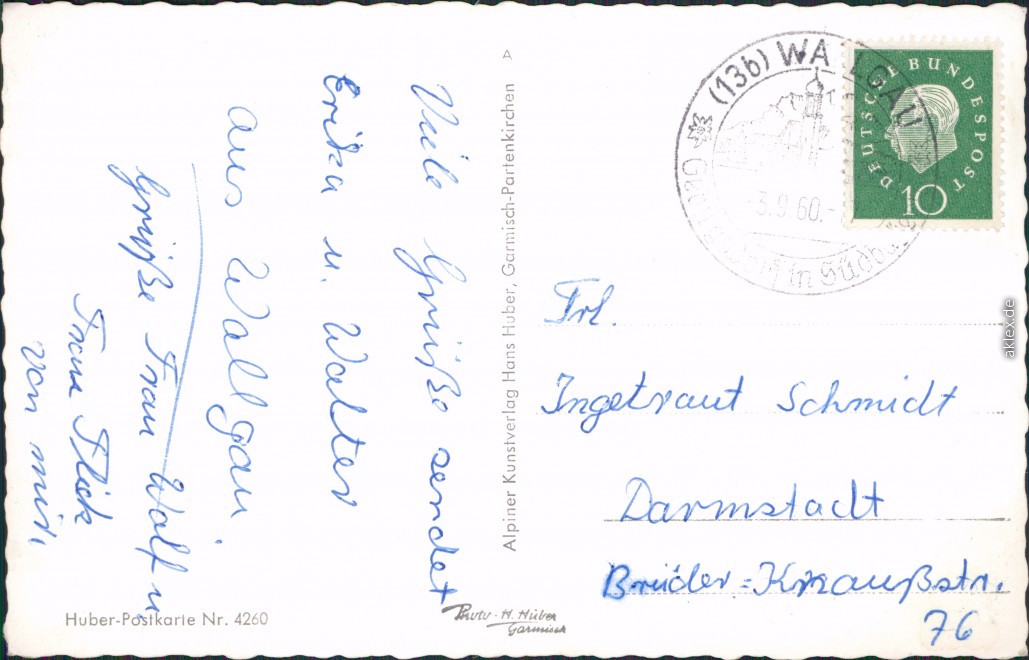 Viele Grüße sendet
Erika u. Walter
aus Walgau.
Grüße Frau Wolf u.
Frau Flick
von mir.
A
Alpiner Kunstverlag Hans Huber, Garmisch-Partenkirchen
Huber-Postkarte Nr. 4260
Photo-H. Huber
Garmisch
(13b) WALLGAU
-3.9.60.-
in Südba
DEUTSCHE BUNDESPOST
10
Frl.
Ingetraut Schmidt
Darmstadt
Brüder-Knaußstr.
76
aklex.de